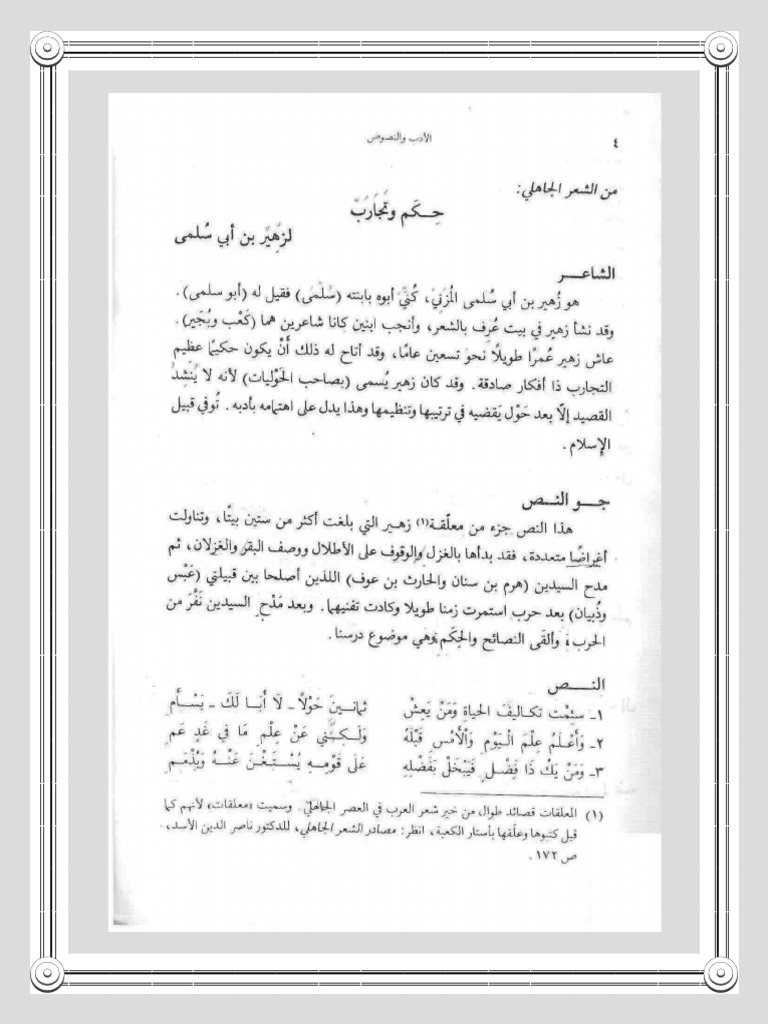 ٤
الأدب والنصوص
من الشعر الجاهلي:
حِـكَم وتَجَارَبٌ
لزهَيْر بن أبي سُلمى
الشاعـــر
هو زُهير بن أبي سُلمى المُزَنِيّ، كُنِّيَ أبوه بابنته (سُلْمَى) فقيل له (أبو سلمى).
وقد نشأ زهير في بيت عُرِف بالشعر، وأنجب ابنين كانا شاعرين هما (كَعْب وبُجَيْر).
عاش زهير عُمرًا طويلًا نحو تسعين عامًا، وقد أتاح له ذلك أنْ يكون حكيمًا عظيم
التجارب ذا أفكار صادقة. وقد كان زهير يُسمى (بصاحب الحَوْليات) لأنه لا يُنْشِدُ
القصيد إلّا بعد حَوْل يَقضيه في ترتيبها وتنظيمها وهذا يدل على اهتمامه بأدبه. تُوفي قبيل
الإِسلام.
جــو النــص
هذا النص جزء من معلّقة(١) زهير التي بلغت أكثر من ستين بيتًا، وتناولت
أغراضًا متعددة، فقد بدأها بالغزل والوقوف على الأطلال ووصف البقر والغزلان، ثم
مدح السيدين (هرم بن سنان والحارث بن عوف) اللذين أصلحا بين قبيلتي (عَبْس
وذُبيان) بعد حرب استمرت زمنا طويلا وكادت تفنيهما. وبعد مَدْحِ السيدين نَفَّر من
الحرب، وألقَى النصائح والحِكَم وهي موضوع درسنا.
النــــص
١ـ سئِمْت تكاليفَ الحياةِ وَمَنْ يَعِشْ ثمانينَ حَوْلًا ـ لَا أَبَا لَكَ ـ يَسْأَمِ
٢ـ وَأَعْلَمُ عِلْمَ الْيَوْمِ وَالْأَمْسِ قَبْلَهُ وَلَكِنَّنِي عَنْ عِلْمِ مَا فِي غَدٍ عَمِ
٣ـ وَمَنْ يَكُ ذَا فَضْلٍ فَيَبْخَلْ بِفَضْلِهِ عَلَى قَوْمِهِ يُسْتَغْنَ عَنْهُ وَيُذْمَمِ
(١) المعلقات قصائد طوال من خير شعر العرب في العصر الجاهلي. وسميت «معلقات» لأنهم كما
قيل كتبوها وعلّقها بأستار الكعبة، انظر: مصادر الشعر الجاهلي، للدكتور ناصر الدين الأسد،
ص ١٧٢.